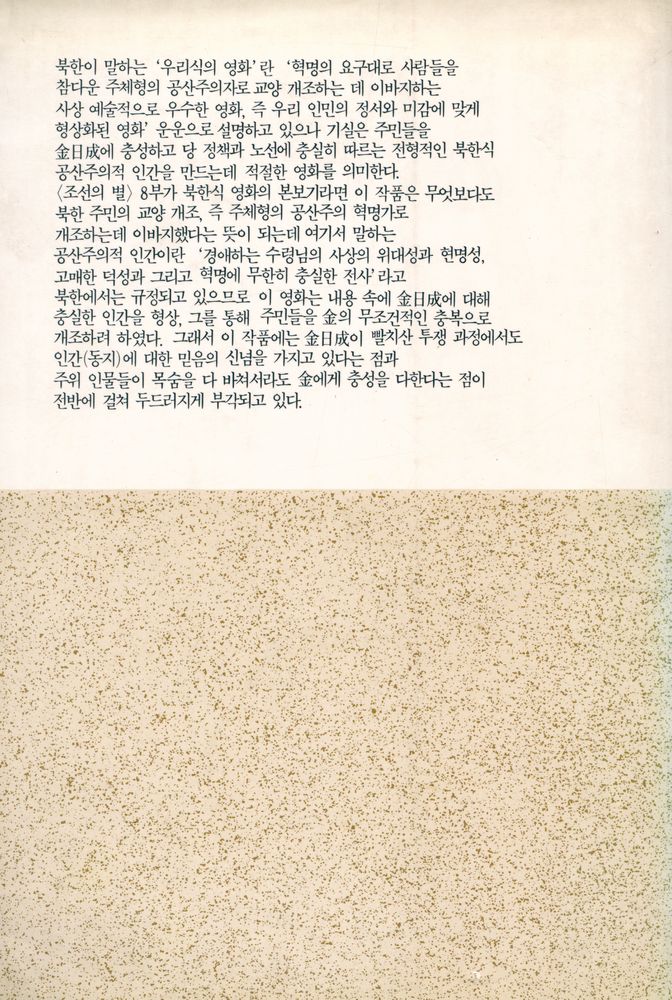 북한이 말하는 ‘우리식의 영화’란 ‘혁명의 요구대로 사람들을
참다운 주체형의 공산주의자로 교양 개조하는 데 이바지하는
사상 예술적으로 우수한 영화, 즉 우리 인민의 정서와 미감에 맞게
형상화된 영화’ 운운으로 설명하고 있으나 기실은 주민들을
金日成에 충성하고 당 정책과 노선에 충실히 따르는 전형적인 북한식
공산주의적 인간을 만드는데 적절한 영화를 의미한다.
〈조선의 별〉 8부가 북한식 영화의 본보기라면 이 작품은 무엇보다도
북한 주민의 교양 개조, 즉 주체형의 공산주의 혁명가로
개조하는데 이바지했다는 뜻이 되는데 여기서 말하는
공산주의적 인간이란 ‘경애하는 수령님의 사상의 위대성과 현명성,
고매한 덕성과 그리고 혁명에 무한히 충실한 전사’라고
북한에서는 규정되고 있으므로 이 영화는 내용 속에 金日成에 대해
충실한 인간을 형상, 그를 통해 주민들을 金의 무조건적인 충복으로
개조하려 하였다. 그래서 이 작품에는 金日成이 빨치산 투쟁 과정에서도
인간(동지)에 대한 믿음의 신념을 가지고 있다는 점과
주위 인물들이 목숨을 다 바쳐서라도 金에게 충성을 다한다는 점이
전반에 걸쳐 두드러지게 부각되고 있다.